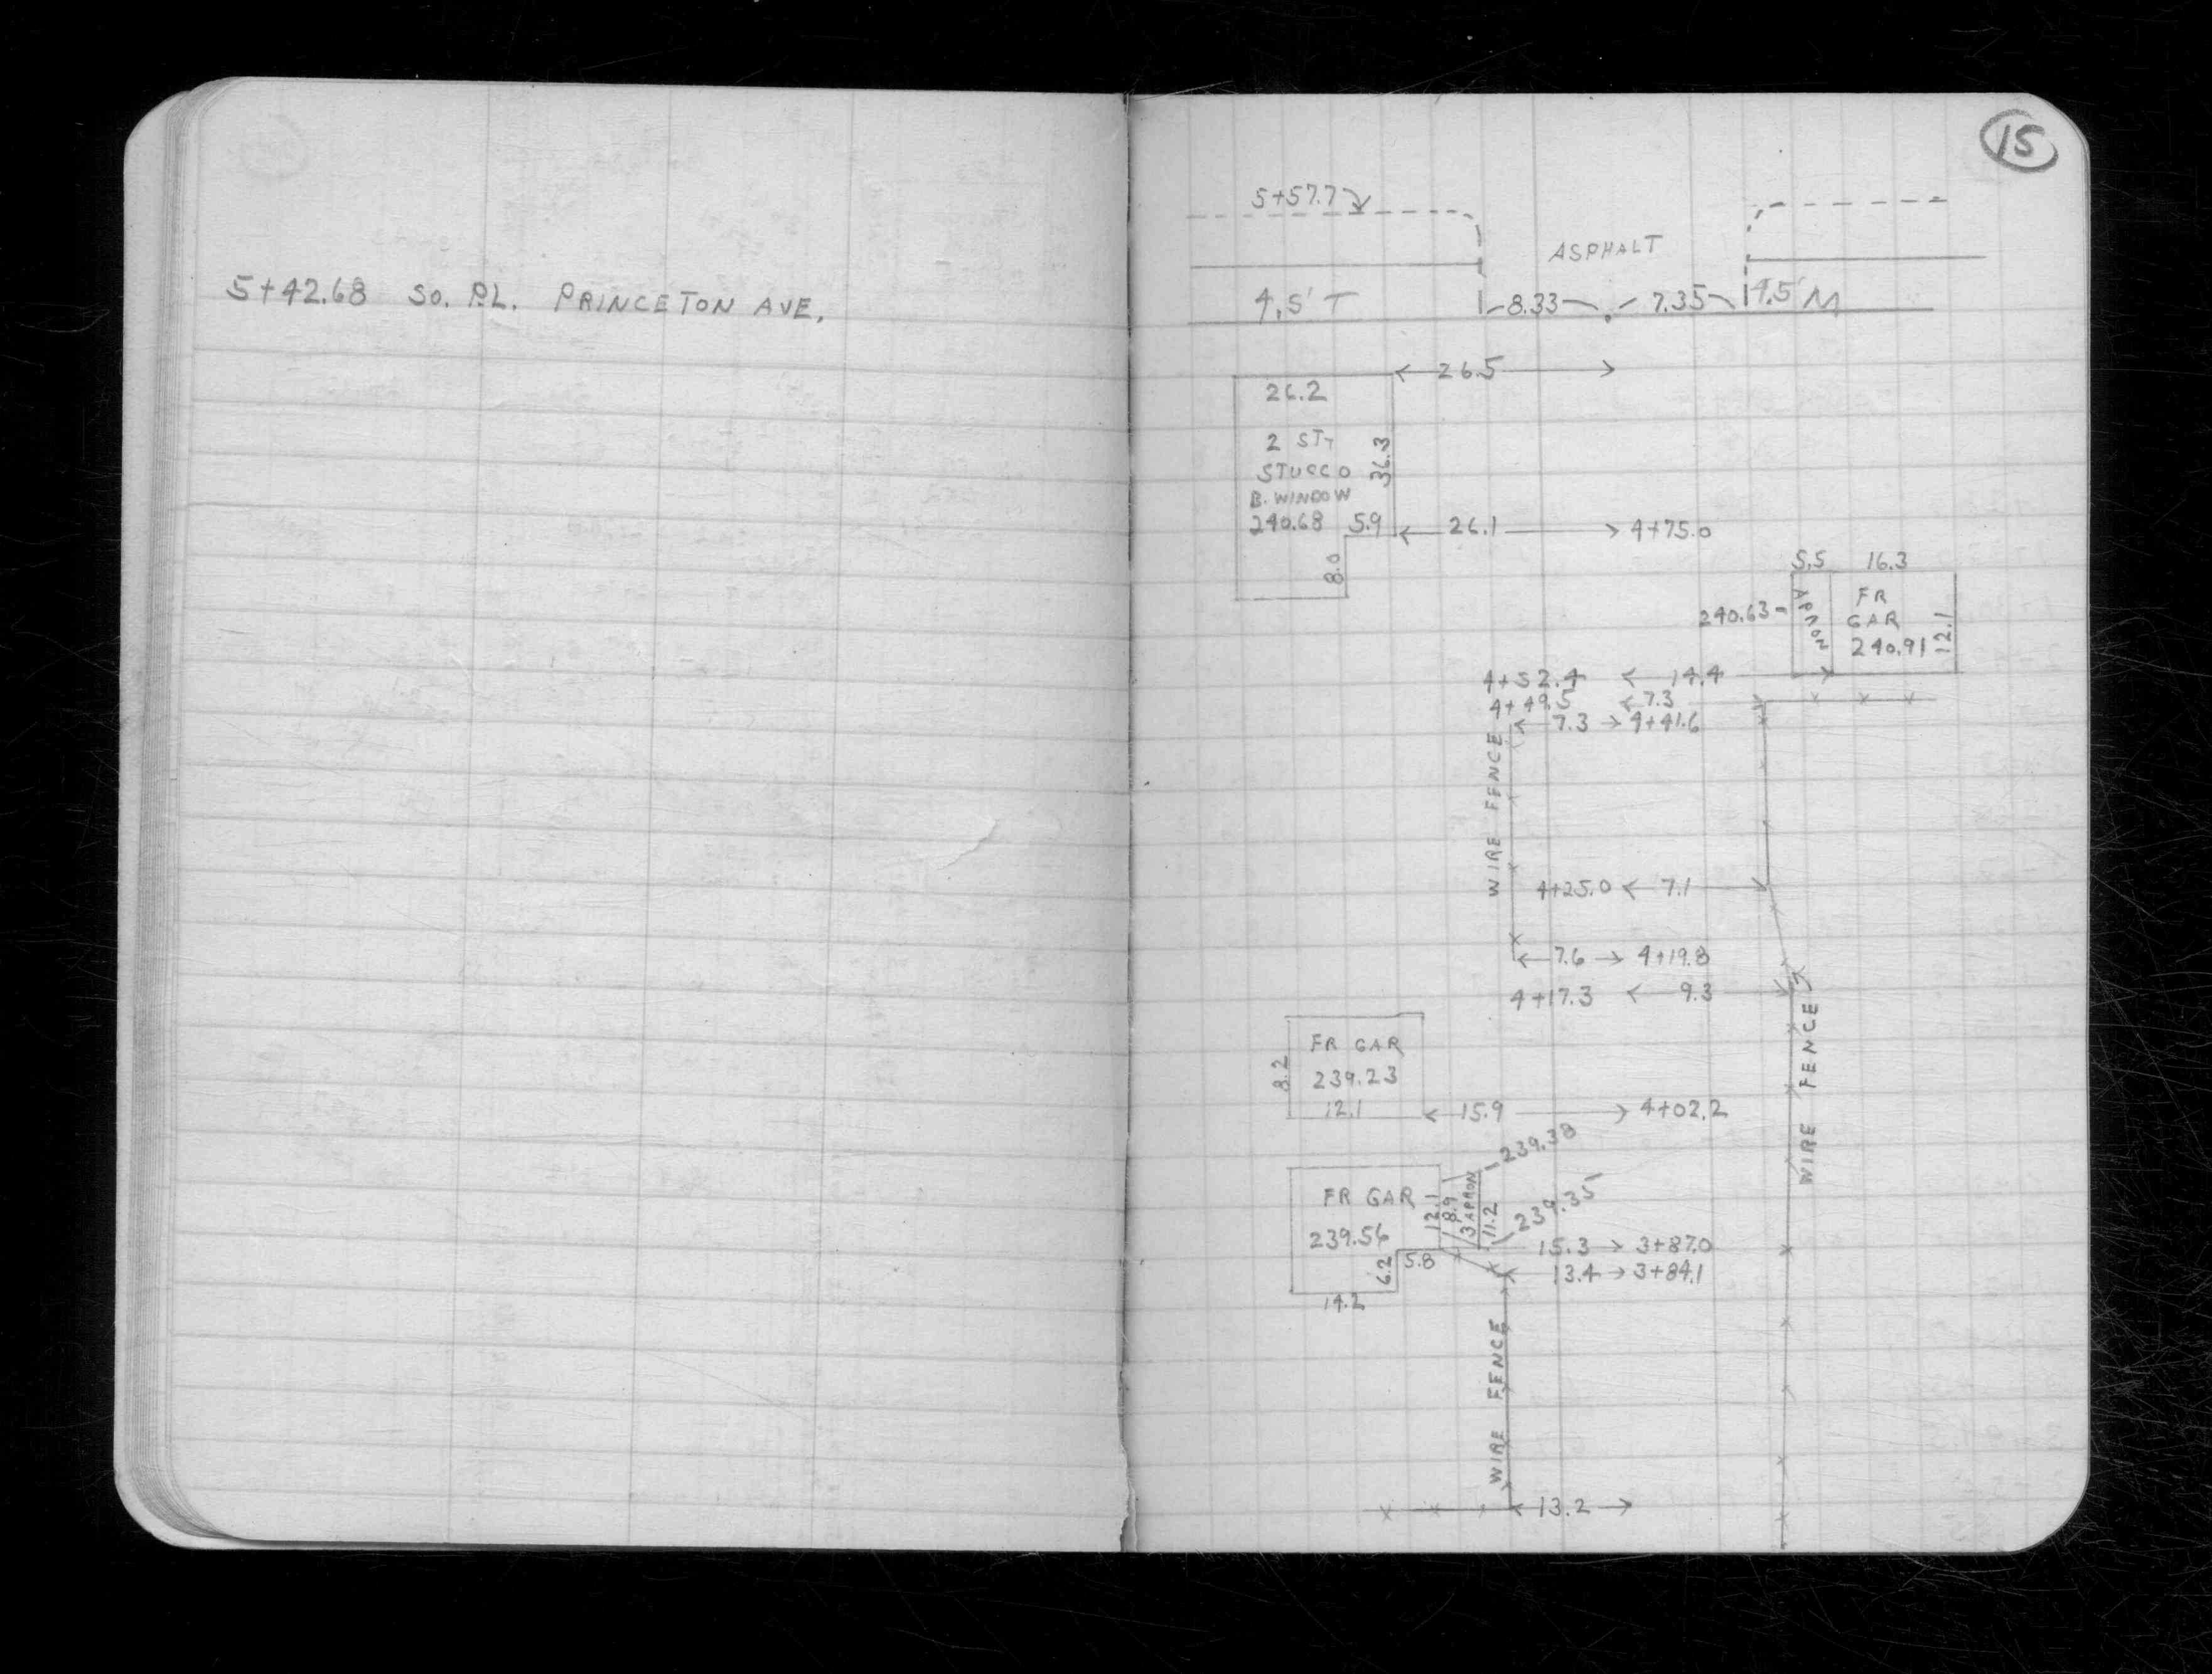 5+42.68 SO. P.L. PRINCETON AVE.
15
5+57.7
ASPHALT
4.5' T
8.33
7.35
4.5' M
26.5
26.2
2 STY
STUCCO
B. WINDOW
240.68
36.3
5.9
26.1
4+75.0
8.0
5.5
16.3
240.63
APRON
FR
GAR
240.91
12.1
4+52.4
14.4
4+49.5
7.3
7.3
4+41.6
WIRE FENCE
4+25.0
7.1
7.6
4+19.8
4+17.3
9.3
WIRE FENCE
FR GAR
239.23
8.2
12.1
15.9
4+02.2
239.38
FR GAR
239.56
12.1
8.9
3 APRON
11.2
239.35
15.3
3+87.0
5.8
6.2
13.4
3+84.1
14.2
WIRE FENCE
13.2